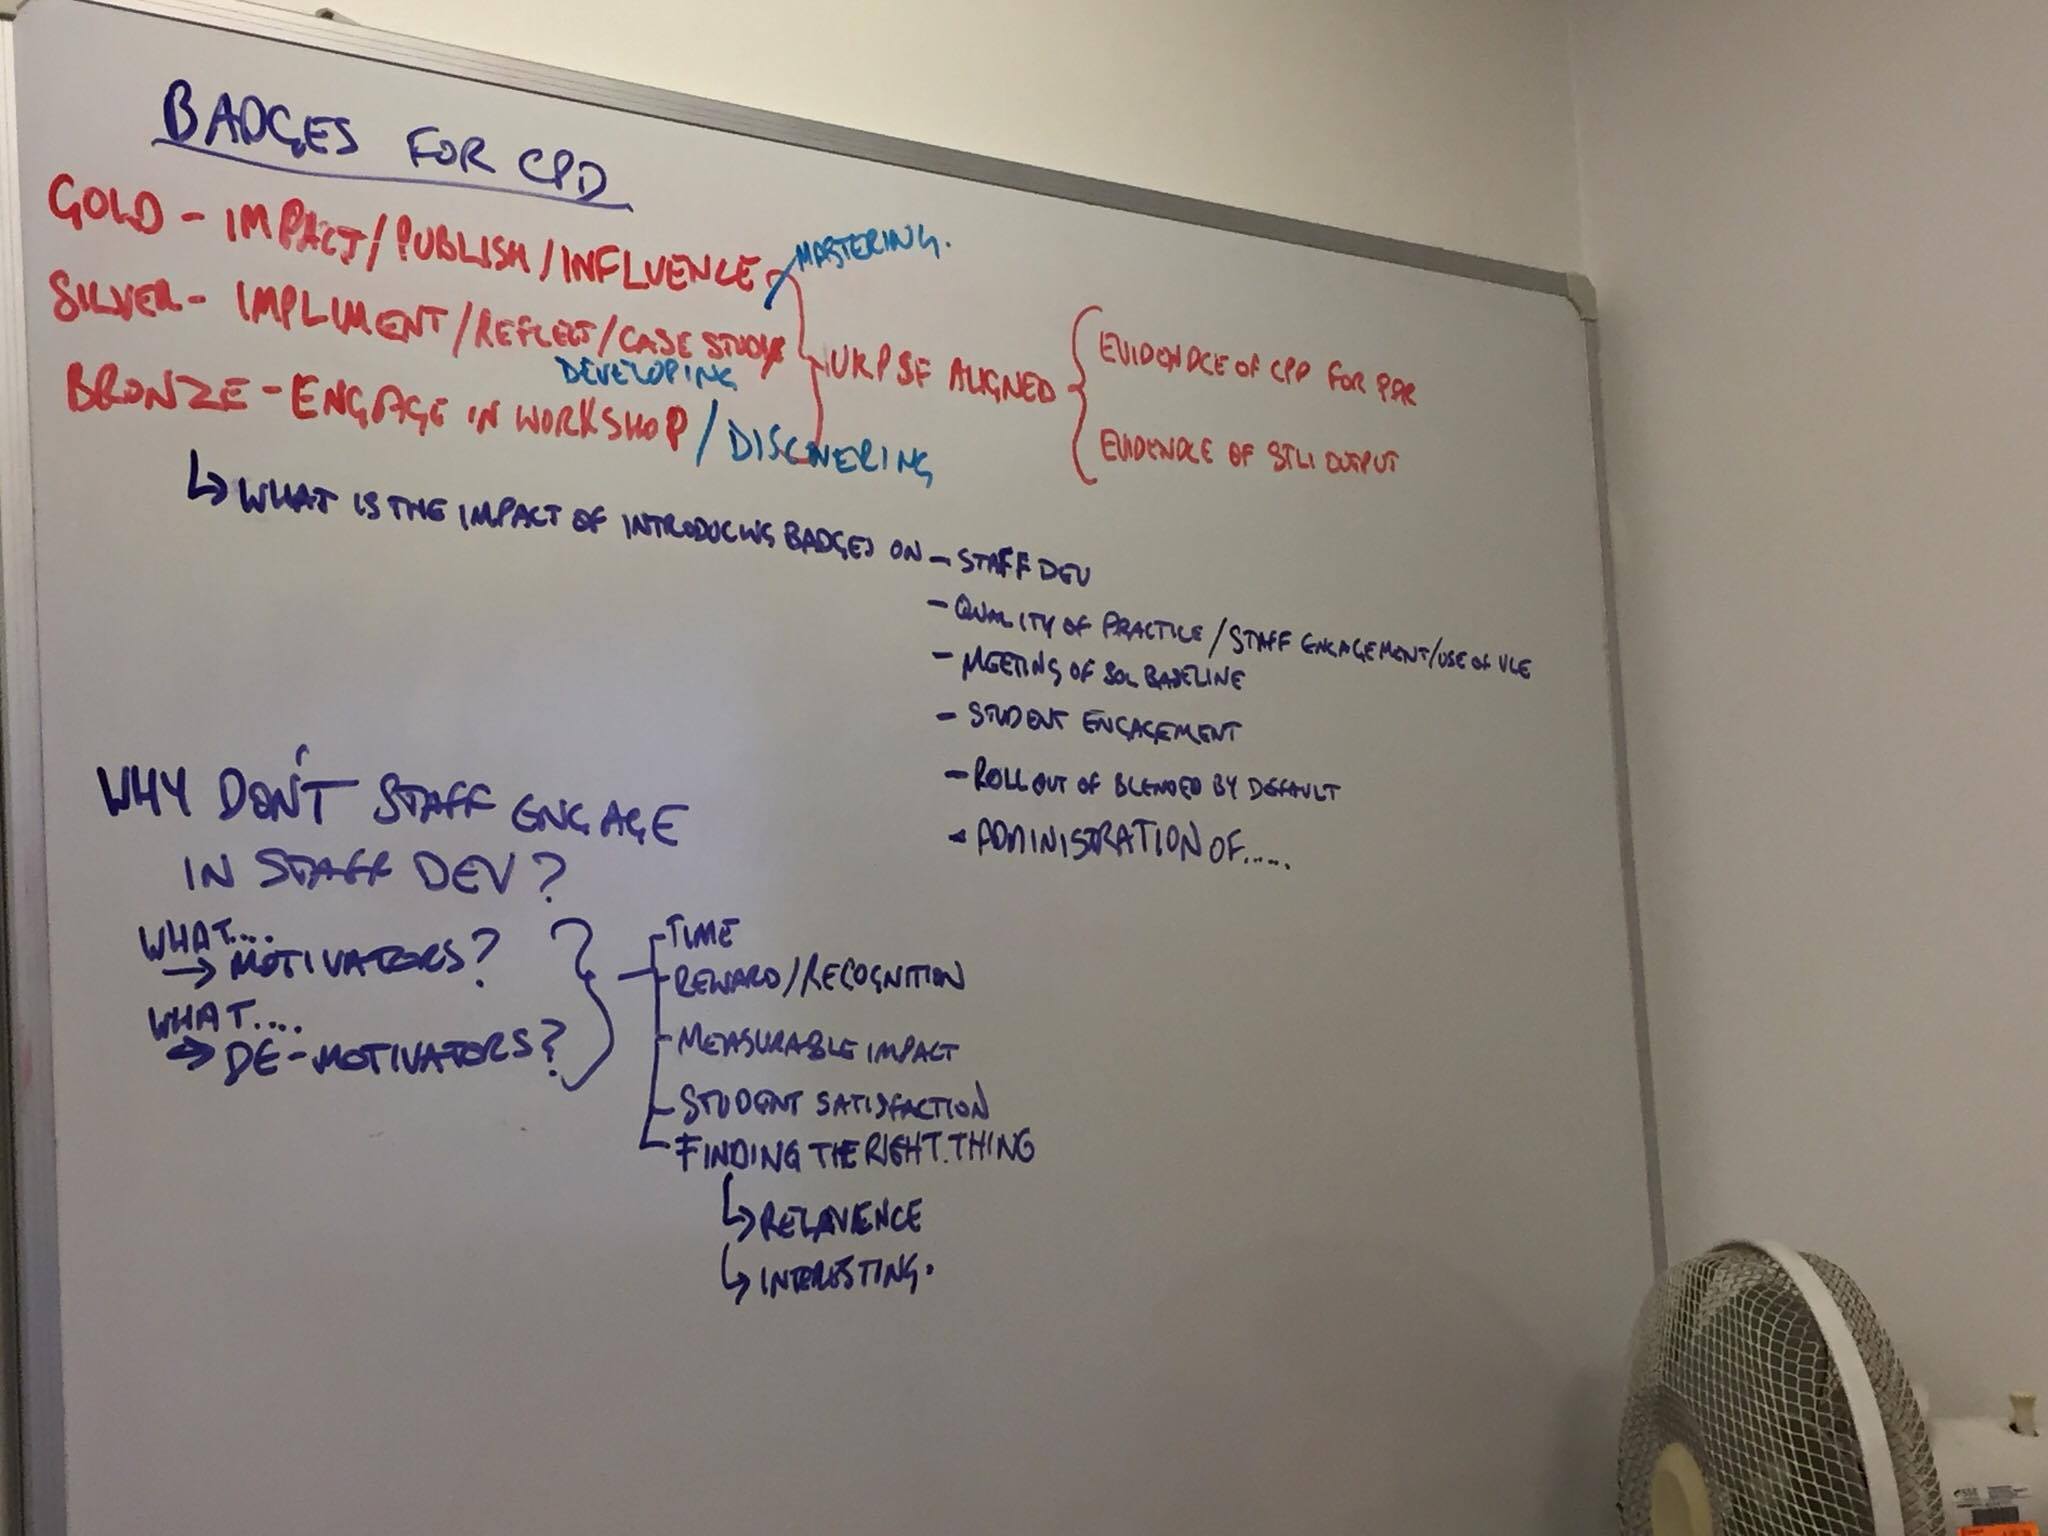 BADGES FOR CPD
GOLD - IMPACT/PUBLISH/INFLUENCE
MASTERING.
SILVER - IMPLIMENT/REFLECT/CASE STUDY
DEVELOPING
BRONZE - ENGAGE IN WORKSHOP / DISCOVERING
UKPSF ALIGNED
EVIDENDCE OF CPD FOR PDR
EVIDENDCE OF STLI OUTPUT
↳ WHAT IS THE IMPACT OF INTRODUCING BADGES ON - STAFF DEV
- QUALITY OF PRACTICE / STAFF ENGAGEMENT/USE OF VLE
- MEETING OF SOL BASELINE
- STUDENT ENGAGEMENT
- ROLL OUT OF BLENDED BY DEFAULT
- ADMINISTRATION OF.....
WHY DON'T STAFF ENGAGE
IN STAFF DEV?
WHAT....
→ MOTIVATORS?
WHAT....
→ DE-MOTIVATORS?
- TIME
- REWARD/RECOGNITION
- MEASURABLE IMPACT
- STUDENT SATISFACTION
- FINDING THE RIGHT THING
↳ RELAVENCE
↳ INTERESTING.